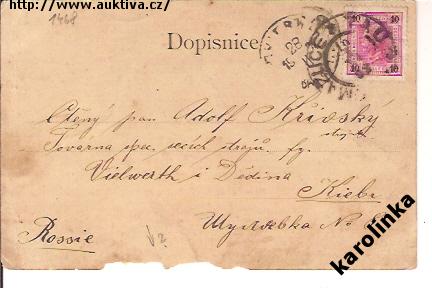 http://www.auktiva.cz/
1468
Dopisnice
10 10
10 10
Ctěný pan Adolf Křivský
strojník
Továrna spec. secích strojů fy.
Vielwerth i Dědina
Kieb
Шулявка No
Rossie
karolinka